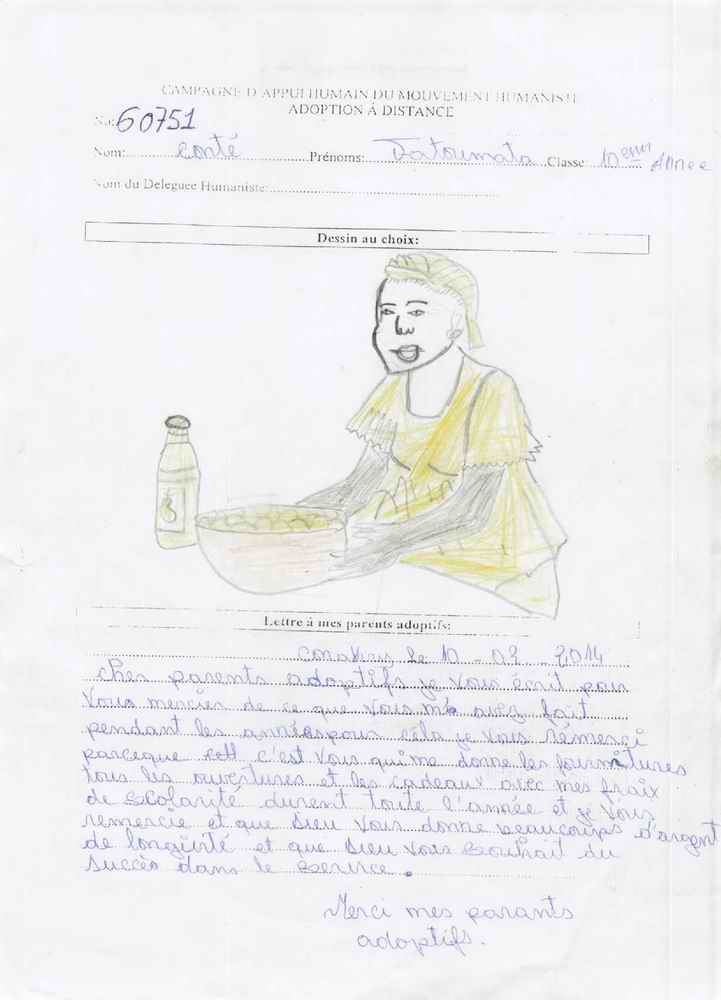 CAMPAGNE D'APPUI HUMAIN DU MOUVEMENT HUMANISTE
ADOPTION À DISTANCE
No: 60751
Nom: Conté Prénoms: Fatoumata Classe 10ème Année
Nom du Deleguee Humaniste:
Dessin au choix:
Lettre à mes parents adoptifs:
Conakry le 10 - 02 - 2014
Cher parents adoptifs je vous écrit pour
vous mercier de ce que vous m'a avez fait
pendant les années pous cela je vous remerci
parceque c'est vous qui me donne les fournitures
tous les ouvertures et les cadeaux avec mes fraix
de scolarité durent toute l'année et je vous
remercie et que Dieu vous donne beaucoups d'argent
de longivité et que Dieu vous souhait du
succès dans le service.
Merci mes parants
adoptifs.